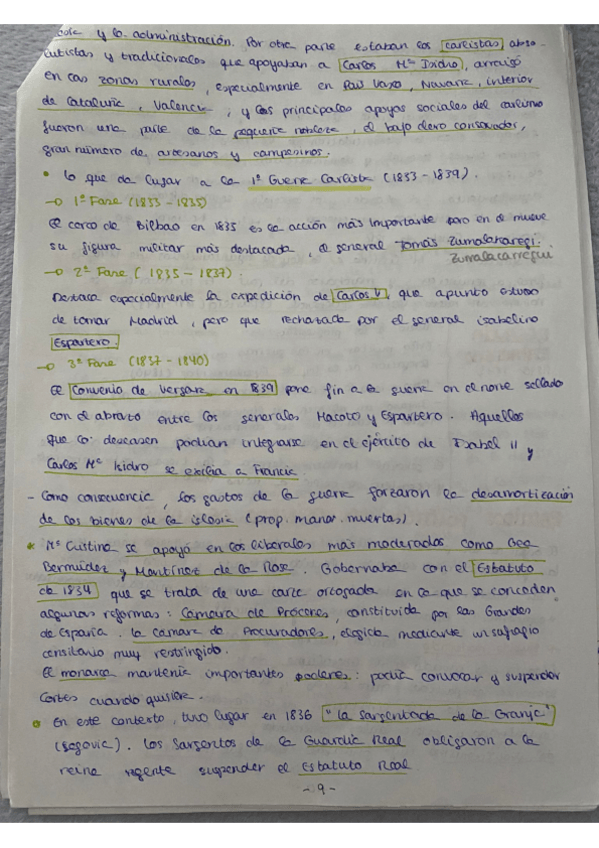 y la administración. Por otra parte estaban los carlistas, abso-
lutistas y tradicionales que apoyaban a Carlos Mª Isidro, arraigó
en las zonas rurales, especialmente en País Vasco, Navarra, interior
de Cataluña, Valencia, y los principales apoyos sociales del carlismo
fueron una parte de la pequeña nobleza, el bajo clero conservador,
gran número de artesanos y campesinos.
• lo que da lugar a la 1ª Guerra Carlista (1833-1839).
→ 1ª Fase (1833-1835)
El cerco de Bilbao en 1835 es la acción más importante pero en el muere
su figura militar más destacada, el general Tomás Zumalakaregi.
Zumalacarregui
→ 2ª Fase (1835-1837)
Destaca especialmente la expedición de Carlos V, que apunto estuvo
de tomar Madrid, pero que rechazada por el general isabelino
Espartero.
→ 3ª Fase (1837-1840)
El Convenio de Vergara en 1839 pone fin a la guerra en el norte sellado
con el abrazo entre los generales Maroto y Espartero. Aquellos
que lo deseasen podían integrarse en el ejército de Isabel II y
Carlos Mª Isidro se exilia a Francia.
- Como consecuencia, los gastos de la guerra forzaron la desamortización
de los bienes de la iglesia (prop. manos muertas).
* Mª Cristina se apoyó en los liberales más moderados como Cea
Bermúdez y Martínez de la Rosa. Gobernaba con el Estatuto
de 1834 que se trata de una carta otorgada en la que se conceden
algunas reformas: Cámara de Próceres, constituida por los Grandes
de España. la camara de Procuradores, elegida mediante un sufragio
censitario muy restringido.
El monarca mantenía importantes poderes: podía convocar y suspender
Cortes cuando quisiera.
• En este contexto, tuvo lugar en 1836 "la sargentada de la Granja"
(Segovia). Los Sargentos de la Guardia Real obligaron a la
reina regente suspender el Estatuto Real
- 9 -